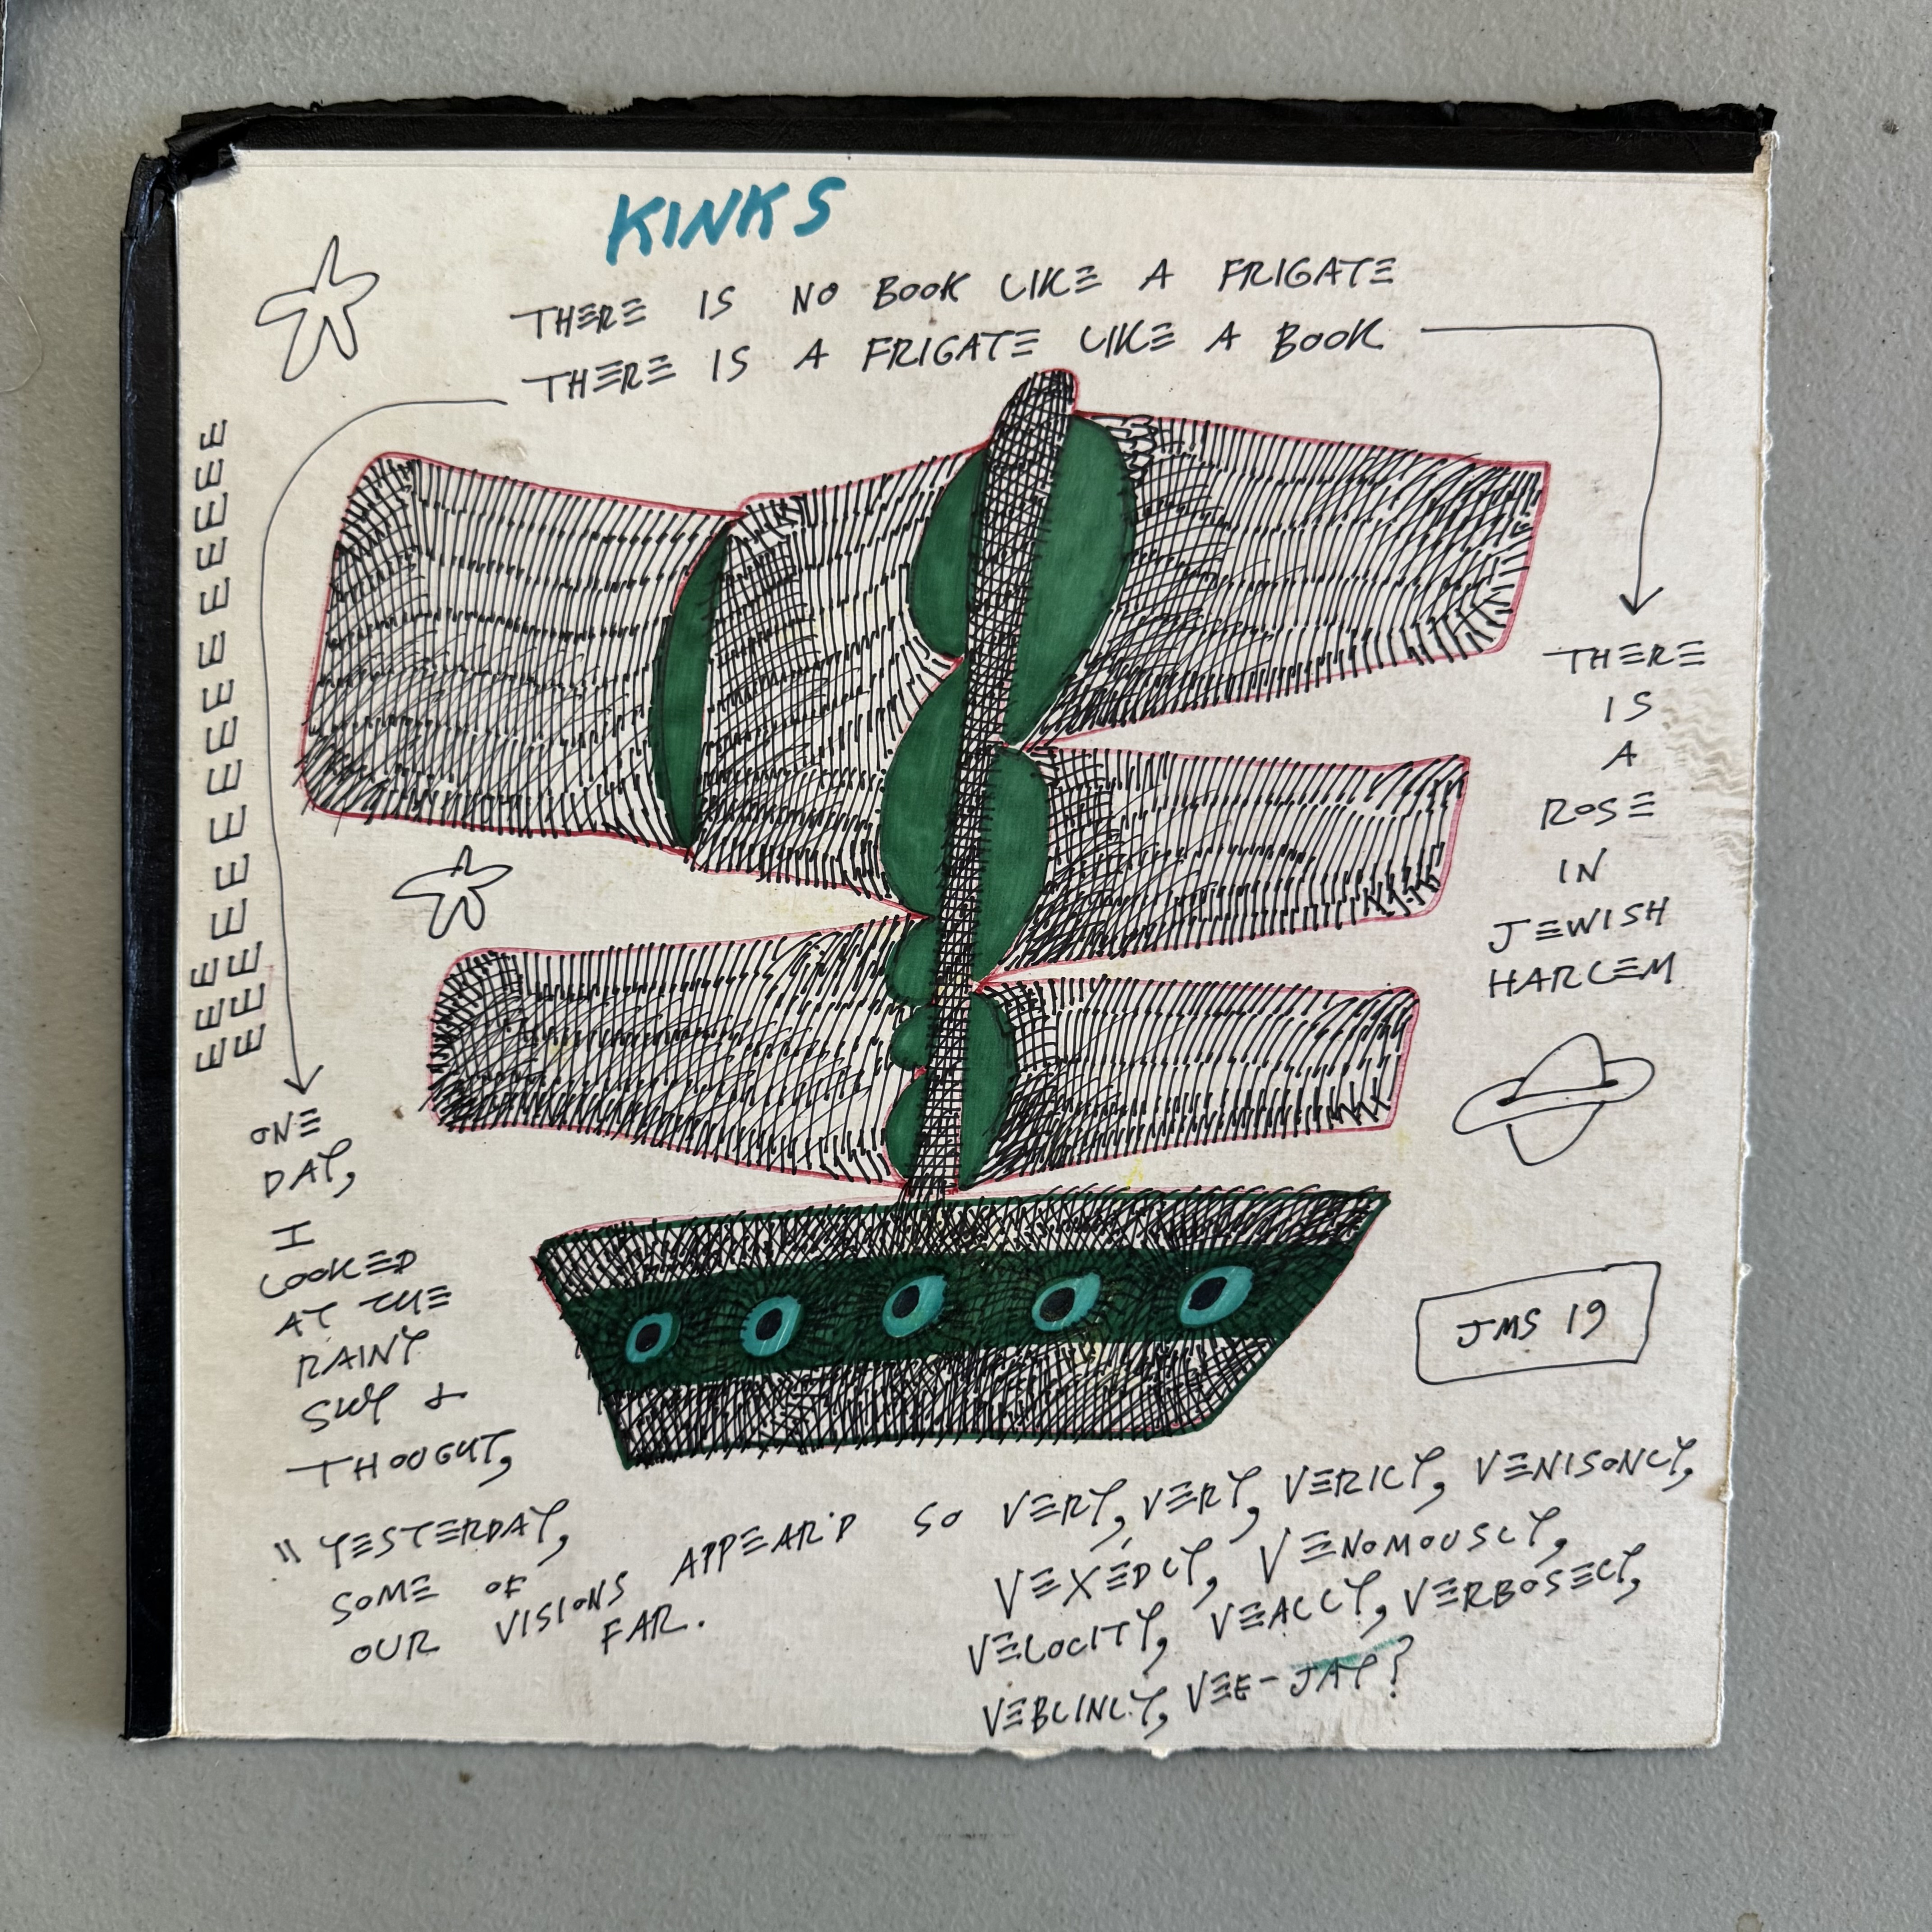 KINKS
THERE IS NO BOOK LIKE A FRIGATE
THERE IS A FRIGATE LIKE A BOOK
EEEEEEEEEEEEEEEEEE
THERE
IS
A
ROSE
IN
JEWISH
HARLEM
JMS 19
ONE
DAY,
I
LOOKED
AT THE
RAINY
SKY &
THOUGHT,
"YESTERDAY,
SOME OF
OUR VISIONS APPEAR'D SO VERY, VERY, VERILY, VENISONLY,
VEXEDLY, VENOMOUSLY,
VELOCITY, VEALLY, VERBOSELY,
VEBLINLY, VEE-JAY?
FAR.